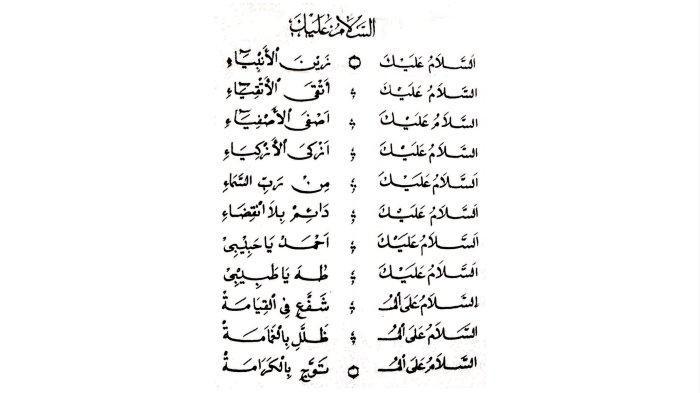 السَّلَامُ عَلَيْكَ
السَّلَامُ عَلَيْكَ زَيْنَ الْأَنْبِيَاءِ
السَّلَامُ عَلَيْكَ أَتْقَى الْأَتْقِيَاءِ
السَّلَامُ عَلَيْكَ اَصْفَى الْأَصْفِيَاءِ
السَّلَامُ عَلَيْكَ اَزْكَى الْأَزْكِيَاءِ
السَّلَامُ عَلَيْكَ مِنْ رَبِّ السَّمَاءِ
السَّلَامُ عَلَيْكَ دَائِمْ بِلَا انْقِضَاءِ
السَّلَامُ عَلَيْكَ اَحْمَدْ يَا حَبِيْبِيْ
السَّلَامُ عَلَيْكَ طٰهَ يَا طَبِيْبِيْ
السَّلَامُ عَلَى الْمُـ شَفَّعِ فِي الْقِيَامَةْ
السَّلَامُ عَلَى الْمُـ ظَلَّلِ بِالْغَمَامَةْ
السَّلَامُ عَلَى الْمُـ تَوَّجِ بِالْكَرَامَةْ